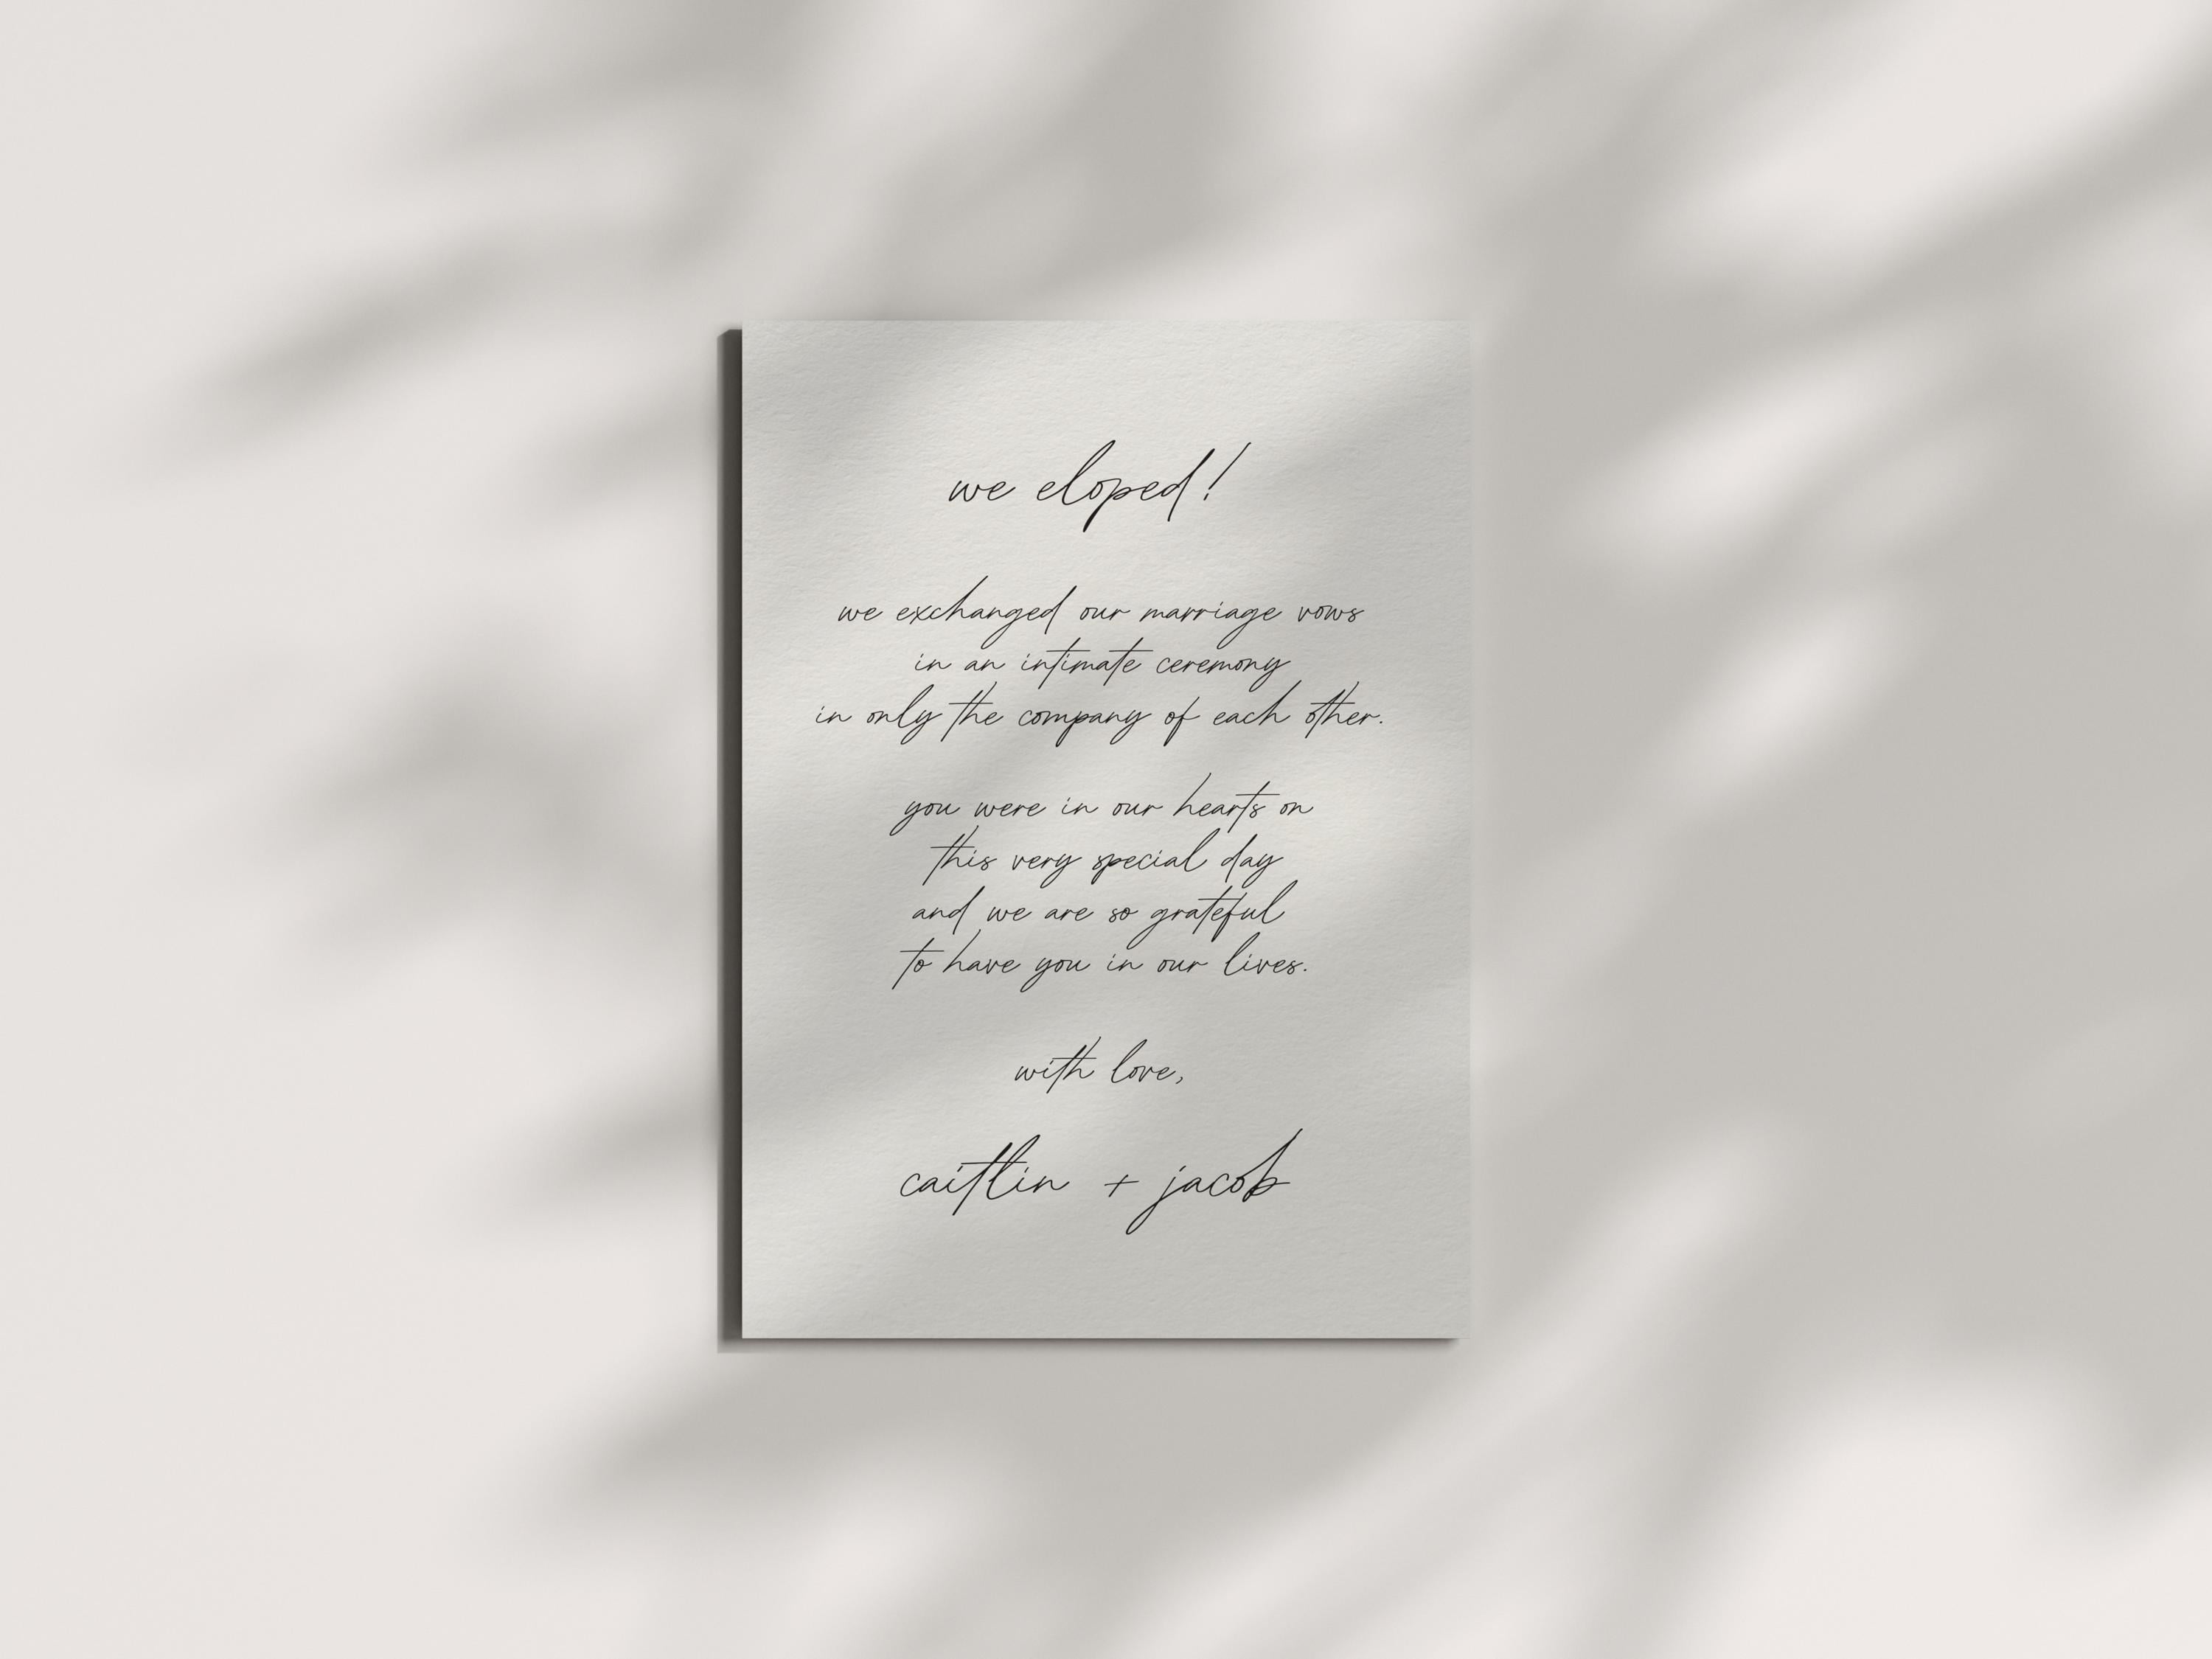 we eloped!
we exchanged our marriage vows
in an intimate ceremony
in only the company of each other.
you were in our hearts on
this very special day
and we are so grateful
to have you in our lives.
with love,
caitlin + jacob